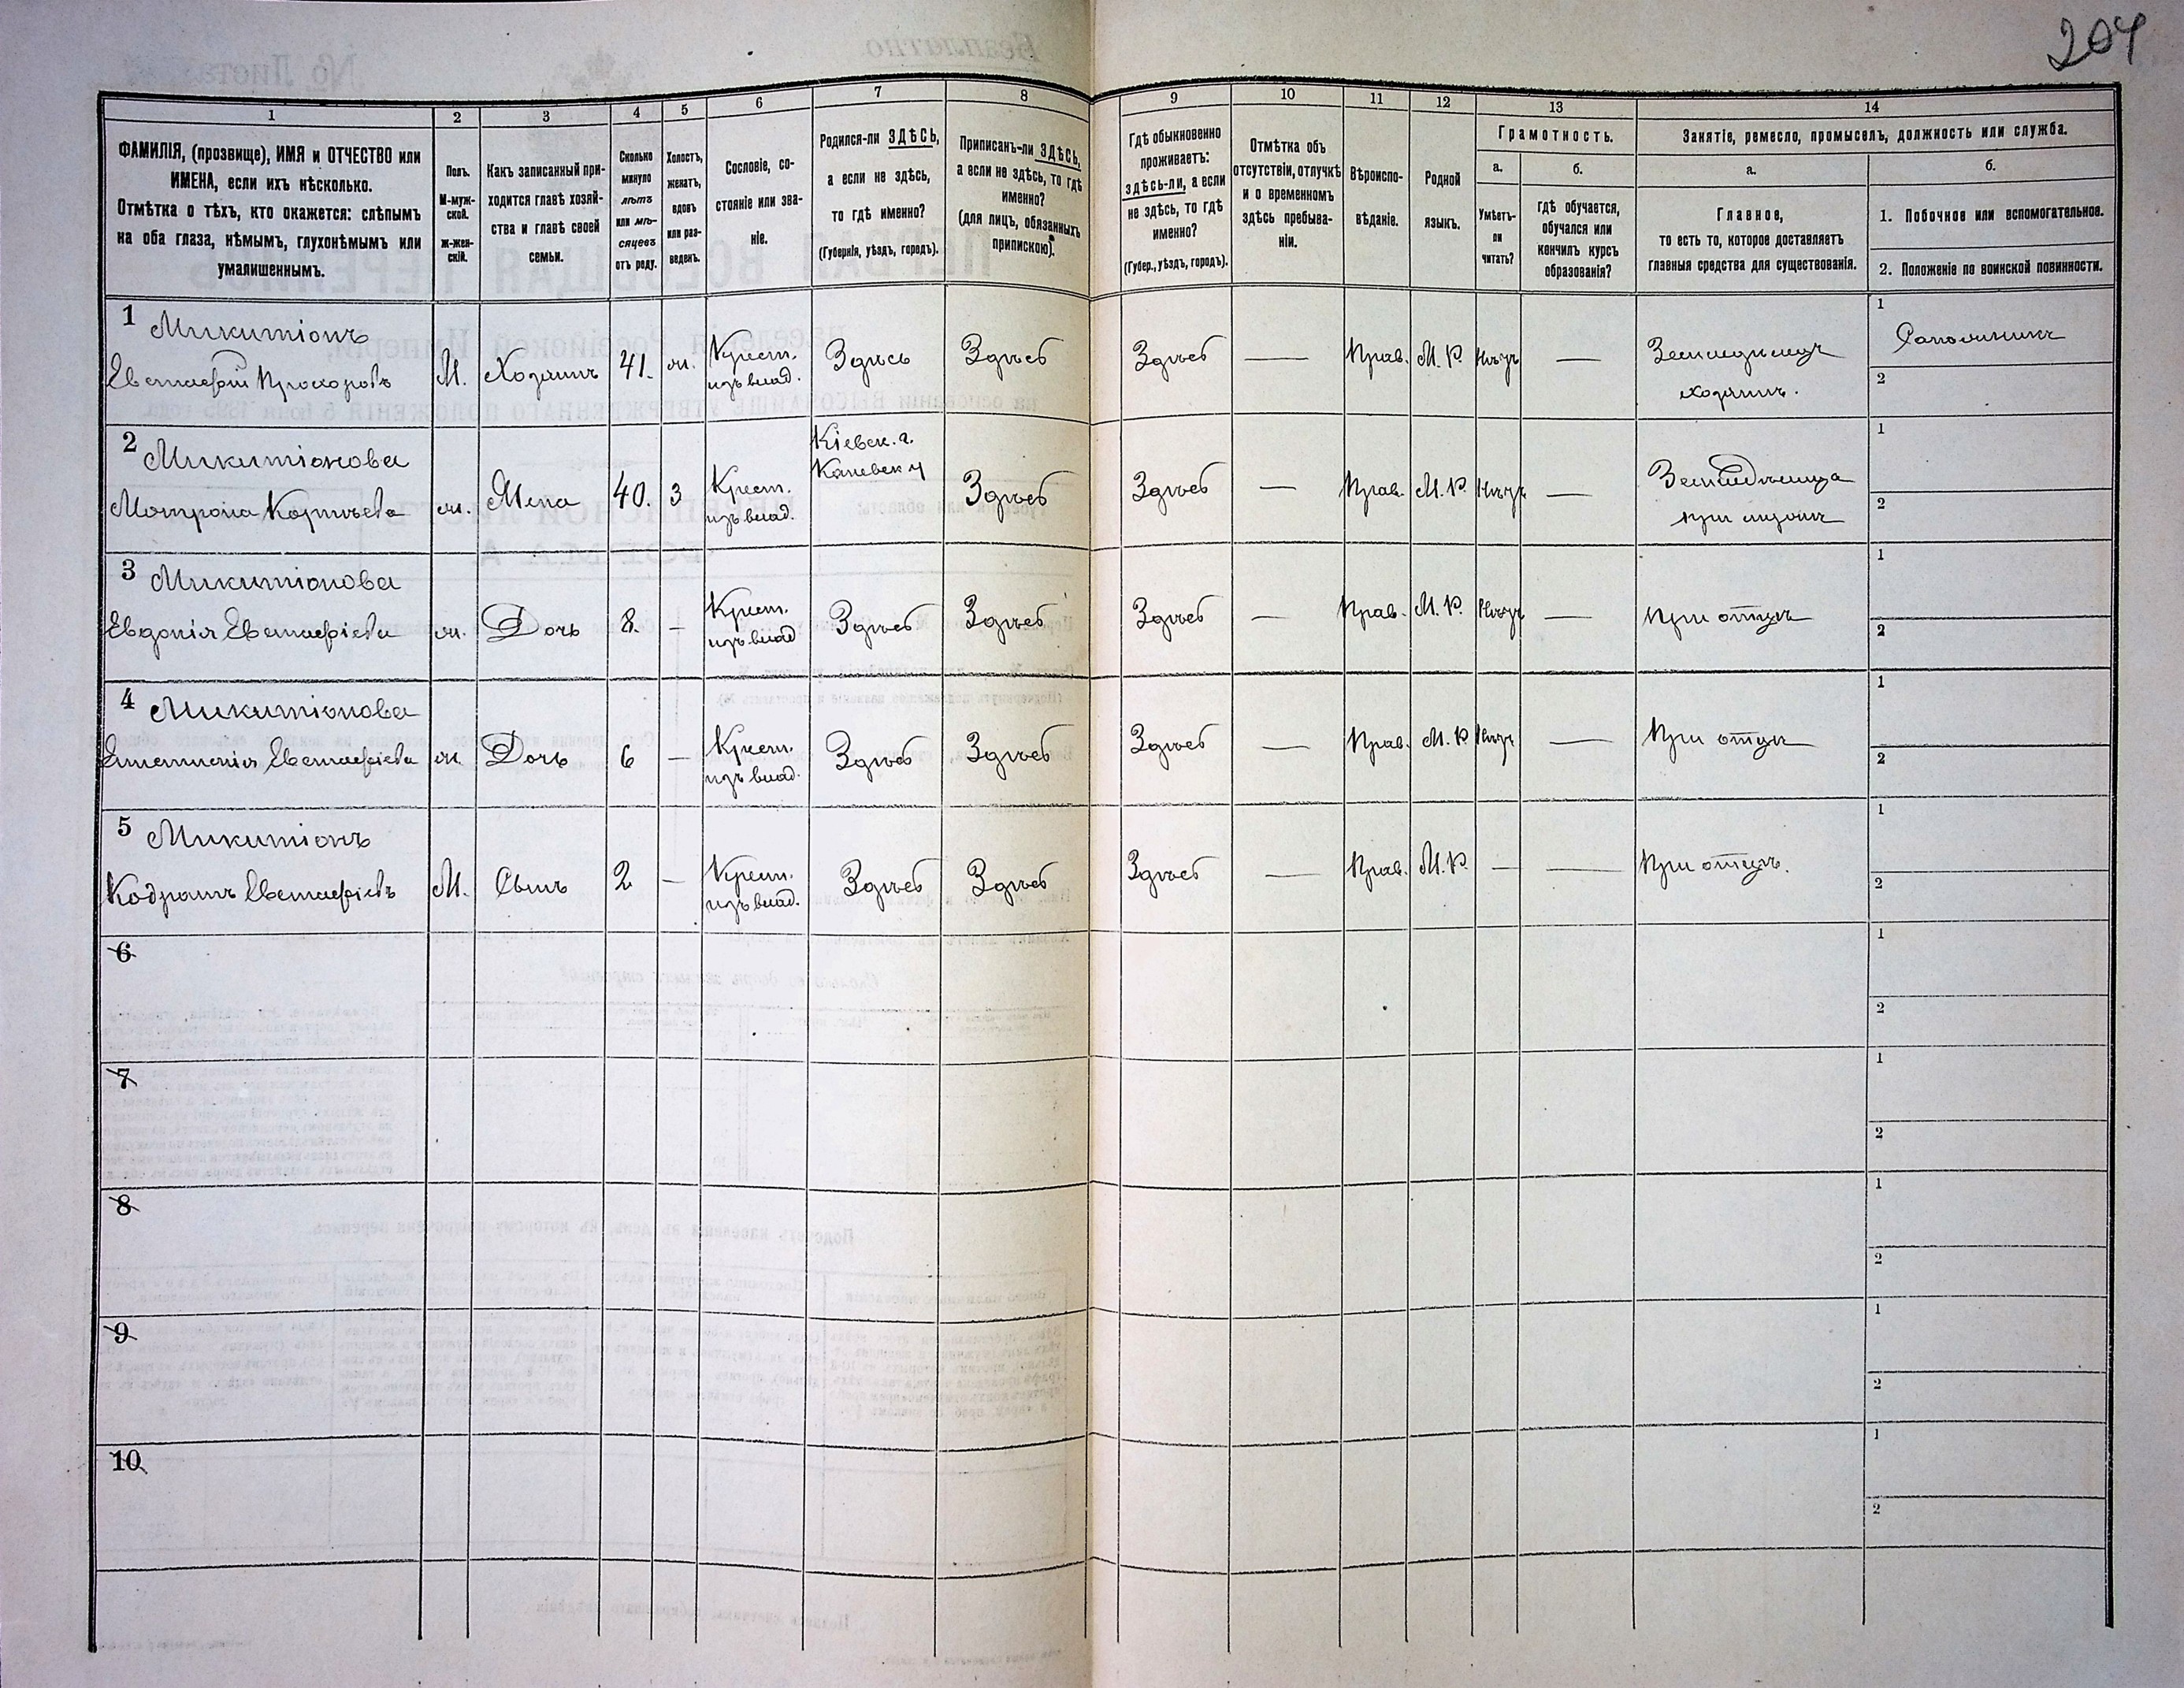 204
1
2
3
4
5
6
7
8
9
10
11
12
13
14
ФАМИЛІЯ, (прозвище), ИМЯ и ОТЧЕСТВО или
ИМЕНА, если ихъ нѣсколько.
Отмѣтка о тѣхъ, кто окажется: слѣпымъ
на оба глаза, нѣмымъ, глухонѣмымъ или
умалишеннымъ.
Полъ.
М-муж-
ской.
Ж-жен-
скій.
Какъ записанный при-
ходится главѣ хозяй-
ства и главѣ своей
семьи.
Сколько
минуло
лѣтъ
или мѣ-
сяцевъ
отъ роду.
Холостъ,
женатъ,
вдовъ
или раз-
веденъ.
Сословіе, со-
стояніе или зва-
ніе.
Родился-ли ЗДѢСЬ,
а если не здѣсь,
то гдѣ именно?
(Губернія, уѣздъ, городъ).
Приписанъ-ли ЗДѢСЬ,
а если не здѣсь, то гдѣ
именно?
(для лицъ, обязанныхъ
припискою).
Гдѣ обыкновенно
проживаетъ:
здѣсь-ли, а если
не здѣсь, то гдѣ
именно?
(Губер., уѣздъ, городъ).
Отмѣтка объ
отсутствіи, отлучкѣ
и о временномъ
здѣсь пребыва-
ніи.
Вѣроиспо-
вѣданіе.
Родной
языкъ.
Грамотность.
а.
Умѣетъ-
ли
читать?
б.
гдѣ обучается,
обучался или
кончилъ курсъ
образованія?
Занятіе, ремесло, промыселъ, должность или служба.
а.
Главное,
то есть то, которое доставляетъ
главныя средства для существованія.
б.
1. Побочное или вспомогательное.
2. Положеніе по воинской повинности.
1 Микитіонъ
Евстафій Прохоровъ
М.
Хозяинъ
41.
ж.
Крест.
изъ влад.
Здѣсь
Здѣсь
Здѣсь
—
Прав.
М. Р.
Нѣтъ
—
Земледѣлецъ
хозяинъ.
1
2
2 Микитіонова
Мотрона Корнѣева
ж.
Жена
40.
З
Крест.
изъ влад.
Кіевск. г.
Каневск у
Здѣсь
Здѣсь
—
Прав.
М. Р.
Нѣтъ
—
Земледѣлица
при мужѣ
1
2
3 Микитіонова
Евдокія Евстафіева
ж.
Дочь
8.
—
Крест.
изъ влад
Здѣсь
Здѣсь
Здѣсь
—
Прав.
М. Р.
Нѣтъ
—
При отцѣ
1
2
4 Микитіонова
Евстафіева
ж.
Дочь
6
—
Крест.
изъ влад.
Здѣсь
Здѣсь
Здѣсь
—
Прав.
М. Р
Нѣтъ
—
При отцѣ
1
2
5 Микитіонъ
Кодратъ Евстафіевъ
М.
Сынъ
2
—
Крест.
изъ влад.
Здѣсь
Здѣсь
Здѣсь
—
Прав.
М. Р.
—
—
При отцѣ.
1
2
6
1
2
7
1
2
8
1
2
9
1
2
10
1
2